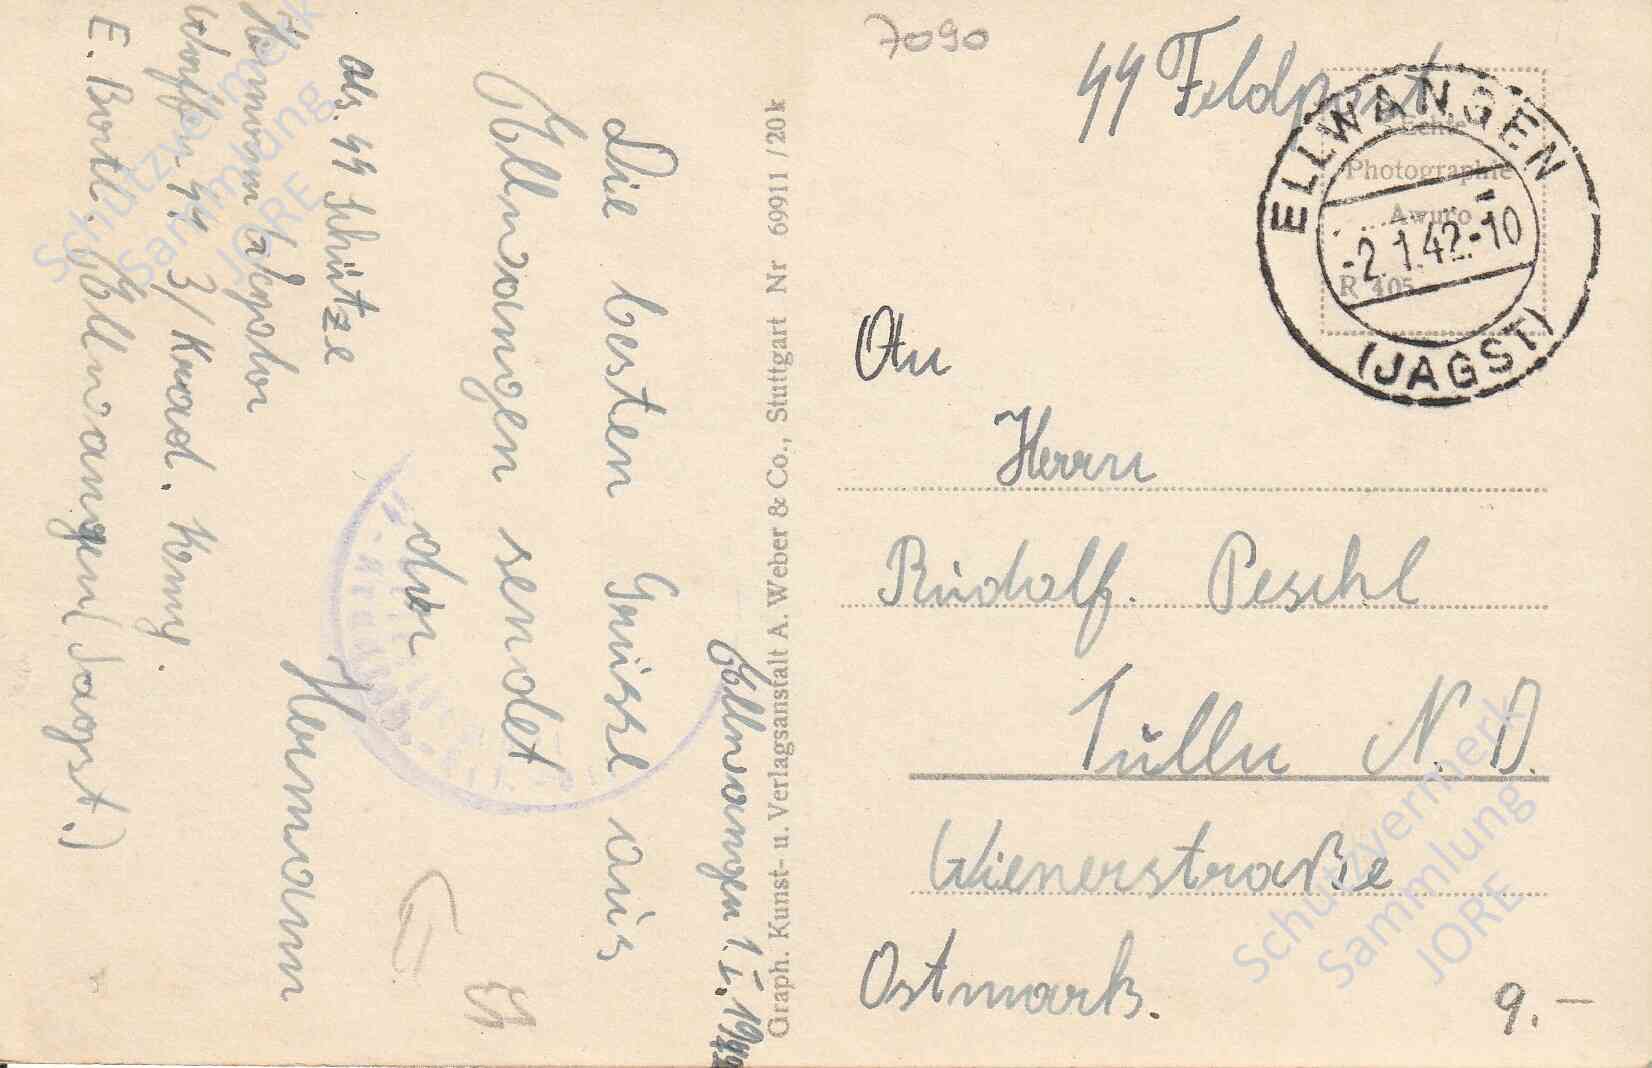 7090
SS Feldpost
ELLWANGEN
-2.1.42.-10
(JAGST)
Echte
Photographie
Awuro
R 405
An
Herrn
Rudolf Peschl
Tulln N. D.
Wienerstraße
Ostmark.
9.—
Graph. Kunst- u. Verlagsanstalt A. Weber & Co., Stuttgart Nr 69911/20k
Ellwangen 1.I.1942
Die besten Grüsse aus
Ellwangen sendet
der
Hermann
Abs. SS Schütze
Hermann
Waffen SS 3/Krad.
E. Bortl. Ellwangen (Jagst.)
Schutzvermerk
Sammlung
JORE
Schutzvermerk
Sammlung
JORE